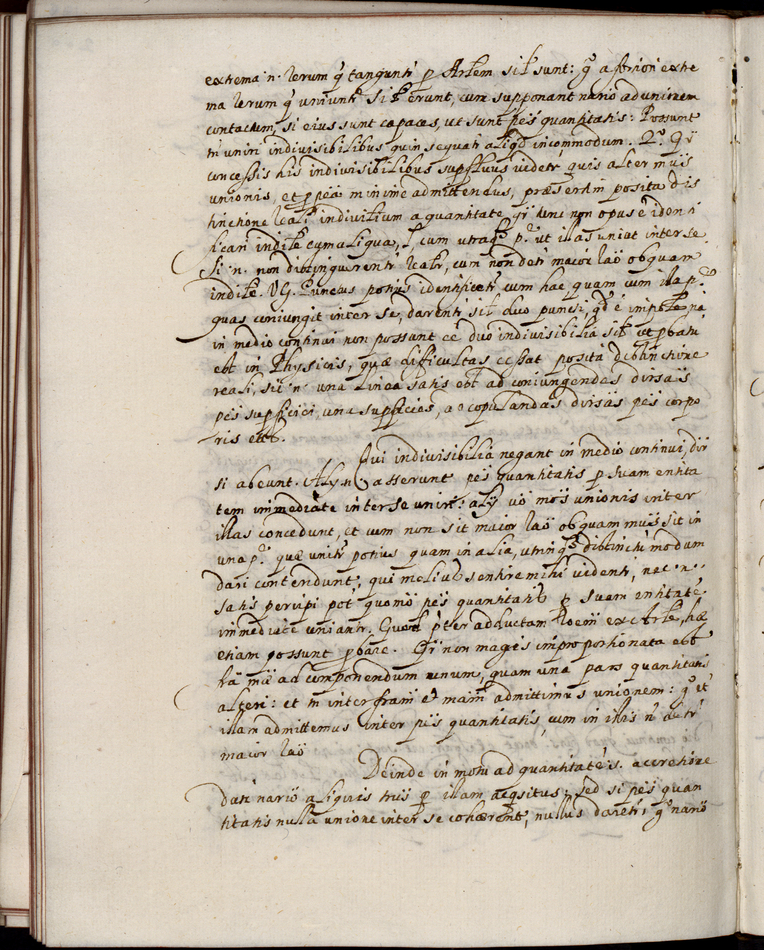 extrema n. rerum q̃ tangunt' p Artem sił sunt: g̃ a fortiori extre
ma rerum q̃ uniunt' sił erunt, cum supponant nario ad unionem
contactum, si eius sunt capaces, ut sunt pẽs quantitatis: Possunt
tñ uniri indivisibilibus quin sequat' aliqd incommodum. 2.º Qr̃
concessis his indivisibilibus supfluus videtr quis alter mũs
unionis, et p peã minime admittendus, præsertim posita dis
tinctione reali indivisilium a quantitate,
ficari cum aliqua, cum utraq p.e ut illas uniat inter se
Si n. non distinguerentr realtr, cum non detr maior raõ ob quam
indile. VG. Punctus potius identificetr cum hac quam cum illa p.e
quas coniungit inter se, darentr sił duo puncti, qd ẽ impłe nã
in medio continui non possunt cẽ duo indivisibilia sił ut pbatr
est in Physicis, quæ difficultas cessat posita distinctione
reali, sic n. una linea satis est ad coniungendas divsas
pẽs supficiei, una supficies, ad copulandas divsas pẽs corpo
ris ett.
Qui indivisibilia negant in medio continui, div̄
si abeunt. Alij n. asserunt pẽs quantitatis p suam entita
tem immediate inter se uniri: alij võ mõs unionis inter
illas concedunt, et cum non sit maior raõ ob quam mũs sit in
una p.e quæ unitr potius quam in alia, utrinq distinctũ modum
dari contendunt, qui melius sentire mihi videntr, nec n.
satis percipi pot' quomõ pẽs quantitatis p suam entitatẽ
immediate uniantr. Quod pter adductam Roem ex Arte, hæ
etiam possunt pbare. Qr̃ non magis improportionata est
fã mæ ad componendum unum, quam una pars quantitatis
alteri: et tñ inter fram et mam admittimus unionem: g̃ et
illam admittemus inter pẽs quantitatis, cum in illis ñ detr
maior raõ
Deinde in motu ad quantitatẽ s. accretione
datr nariõ aliquis mũs p illam acqsitus; sed si pẽs quan
titatis nulla unione inter se cohærent, nullus daretr, g̃ nariõ